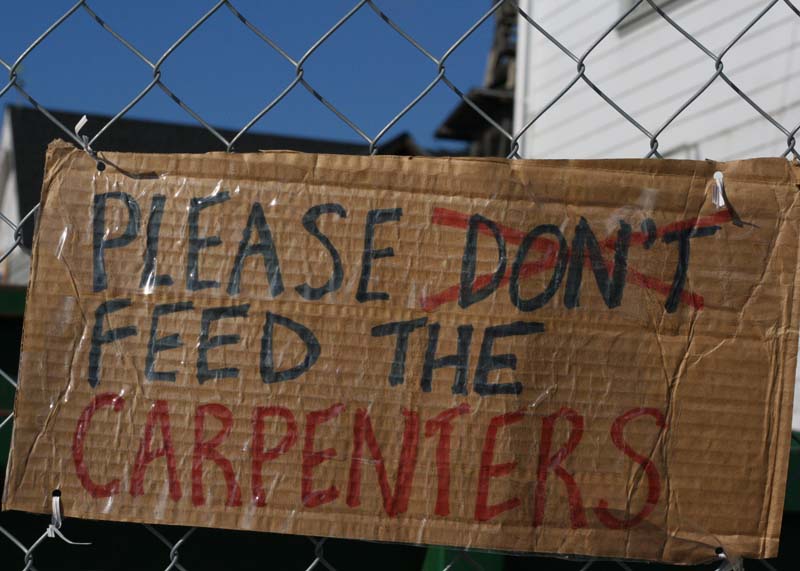 PLEASE DON'T
FEED THE
CARPENTERS